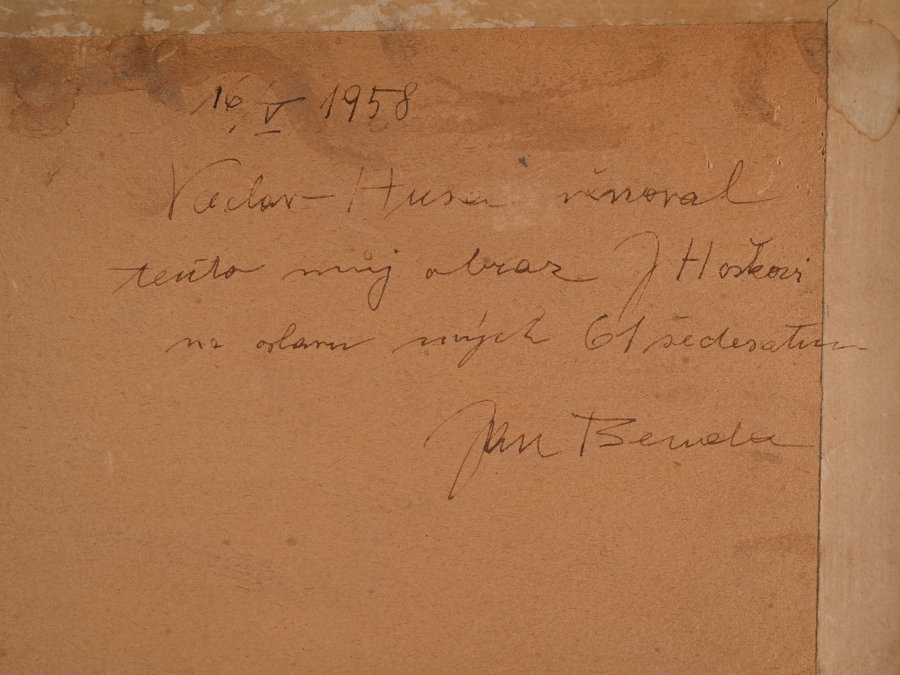 16, V 1958
Václav-Husa věnoval
tento můj obraz J Hoškovi
na oslavu mých 61 šedesatin
Jan Benda